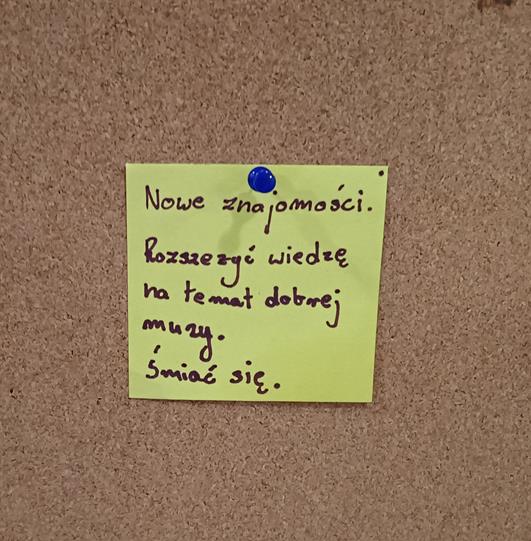 Nowe znajomości.
Rozszerzyć wiedzę
na temat dobrej
muzy.
Śmiać się.